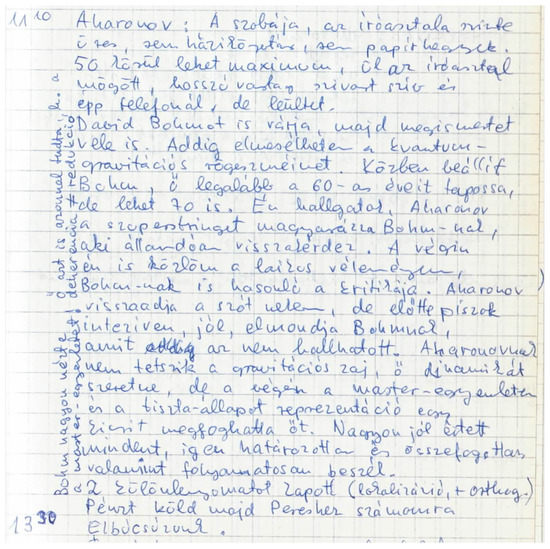 11 10 Aharonov: A szobája, az íróasztala szinte
üres, sem házikőzetár, sem papírhegyek.
50 körül lehet maximum, ül az íróasztal
mögött, hosszú vastag szivart szív és
épp telefonál, de leültet.
David Bohmot is várja, majd megismertet
vele is. Addig elmesélhetem a kvantum-
gravitációs rögeszméimet. Közben beállít
Bohm, ő legalább a 60-as éveit tapossa,
de lehet 70 is. Én hallgatok, Aharonov
a szuperstringet magyarázza Bohm-nak,
aki állandóan visszakérdez. A végén
én is közlöm a laikus véleményem,
Bohm-nak is hasonló a kritikája. Aharonov
visszaadja a szót nekem, de előtte piszok
intenzíven, jól, elmondja Bohmnak,
amit az nem hallhatott. Aharonovnak
nem tetszik a gravitációs zaj, ő dinamikát
szeretne, de a végén a master-egyenlet
és a tiszta-állapot reprezentáció egy
kicsit megfoghatta őt. Nagyon jól értett
mindent, igen határozottan és összefogottan,
valamint folyamatosan beszél.
2 különlenyomatot kapott (lokalizáció, + orthog.)
Pénzt küld majd Pereshez számomra
13 30 Elbúcsúzunk.
Bohm nagyon nézte ő azt is azonnal tudta, h. a
master-egyenletet! dekoherencia ≠ redukció